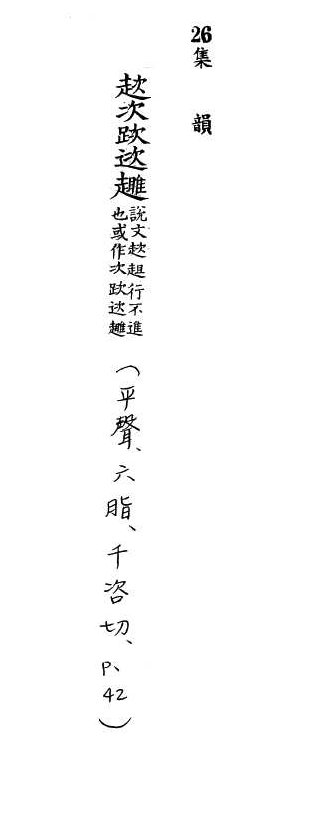 26集韻
趑次䟣趡
說文趑趄行不進
也或作次䟣趡
（平聲、六脂、千咨切、P、42）